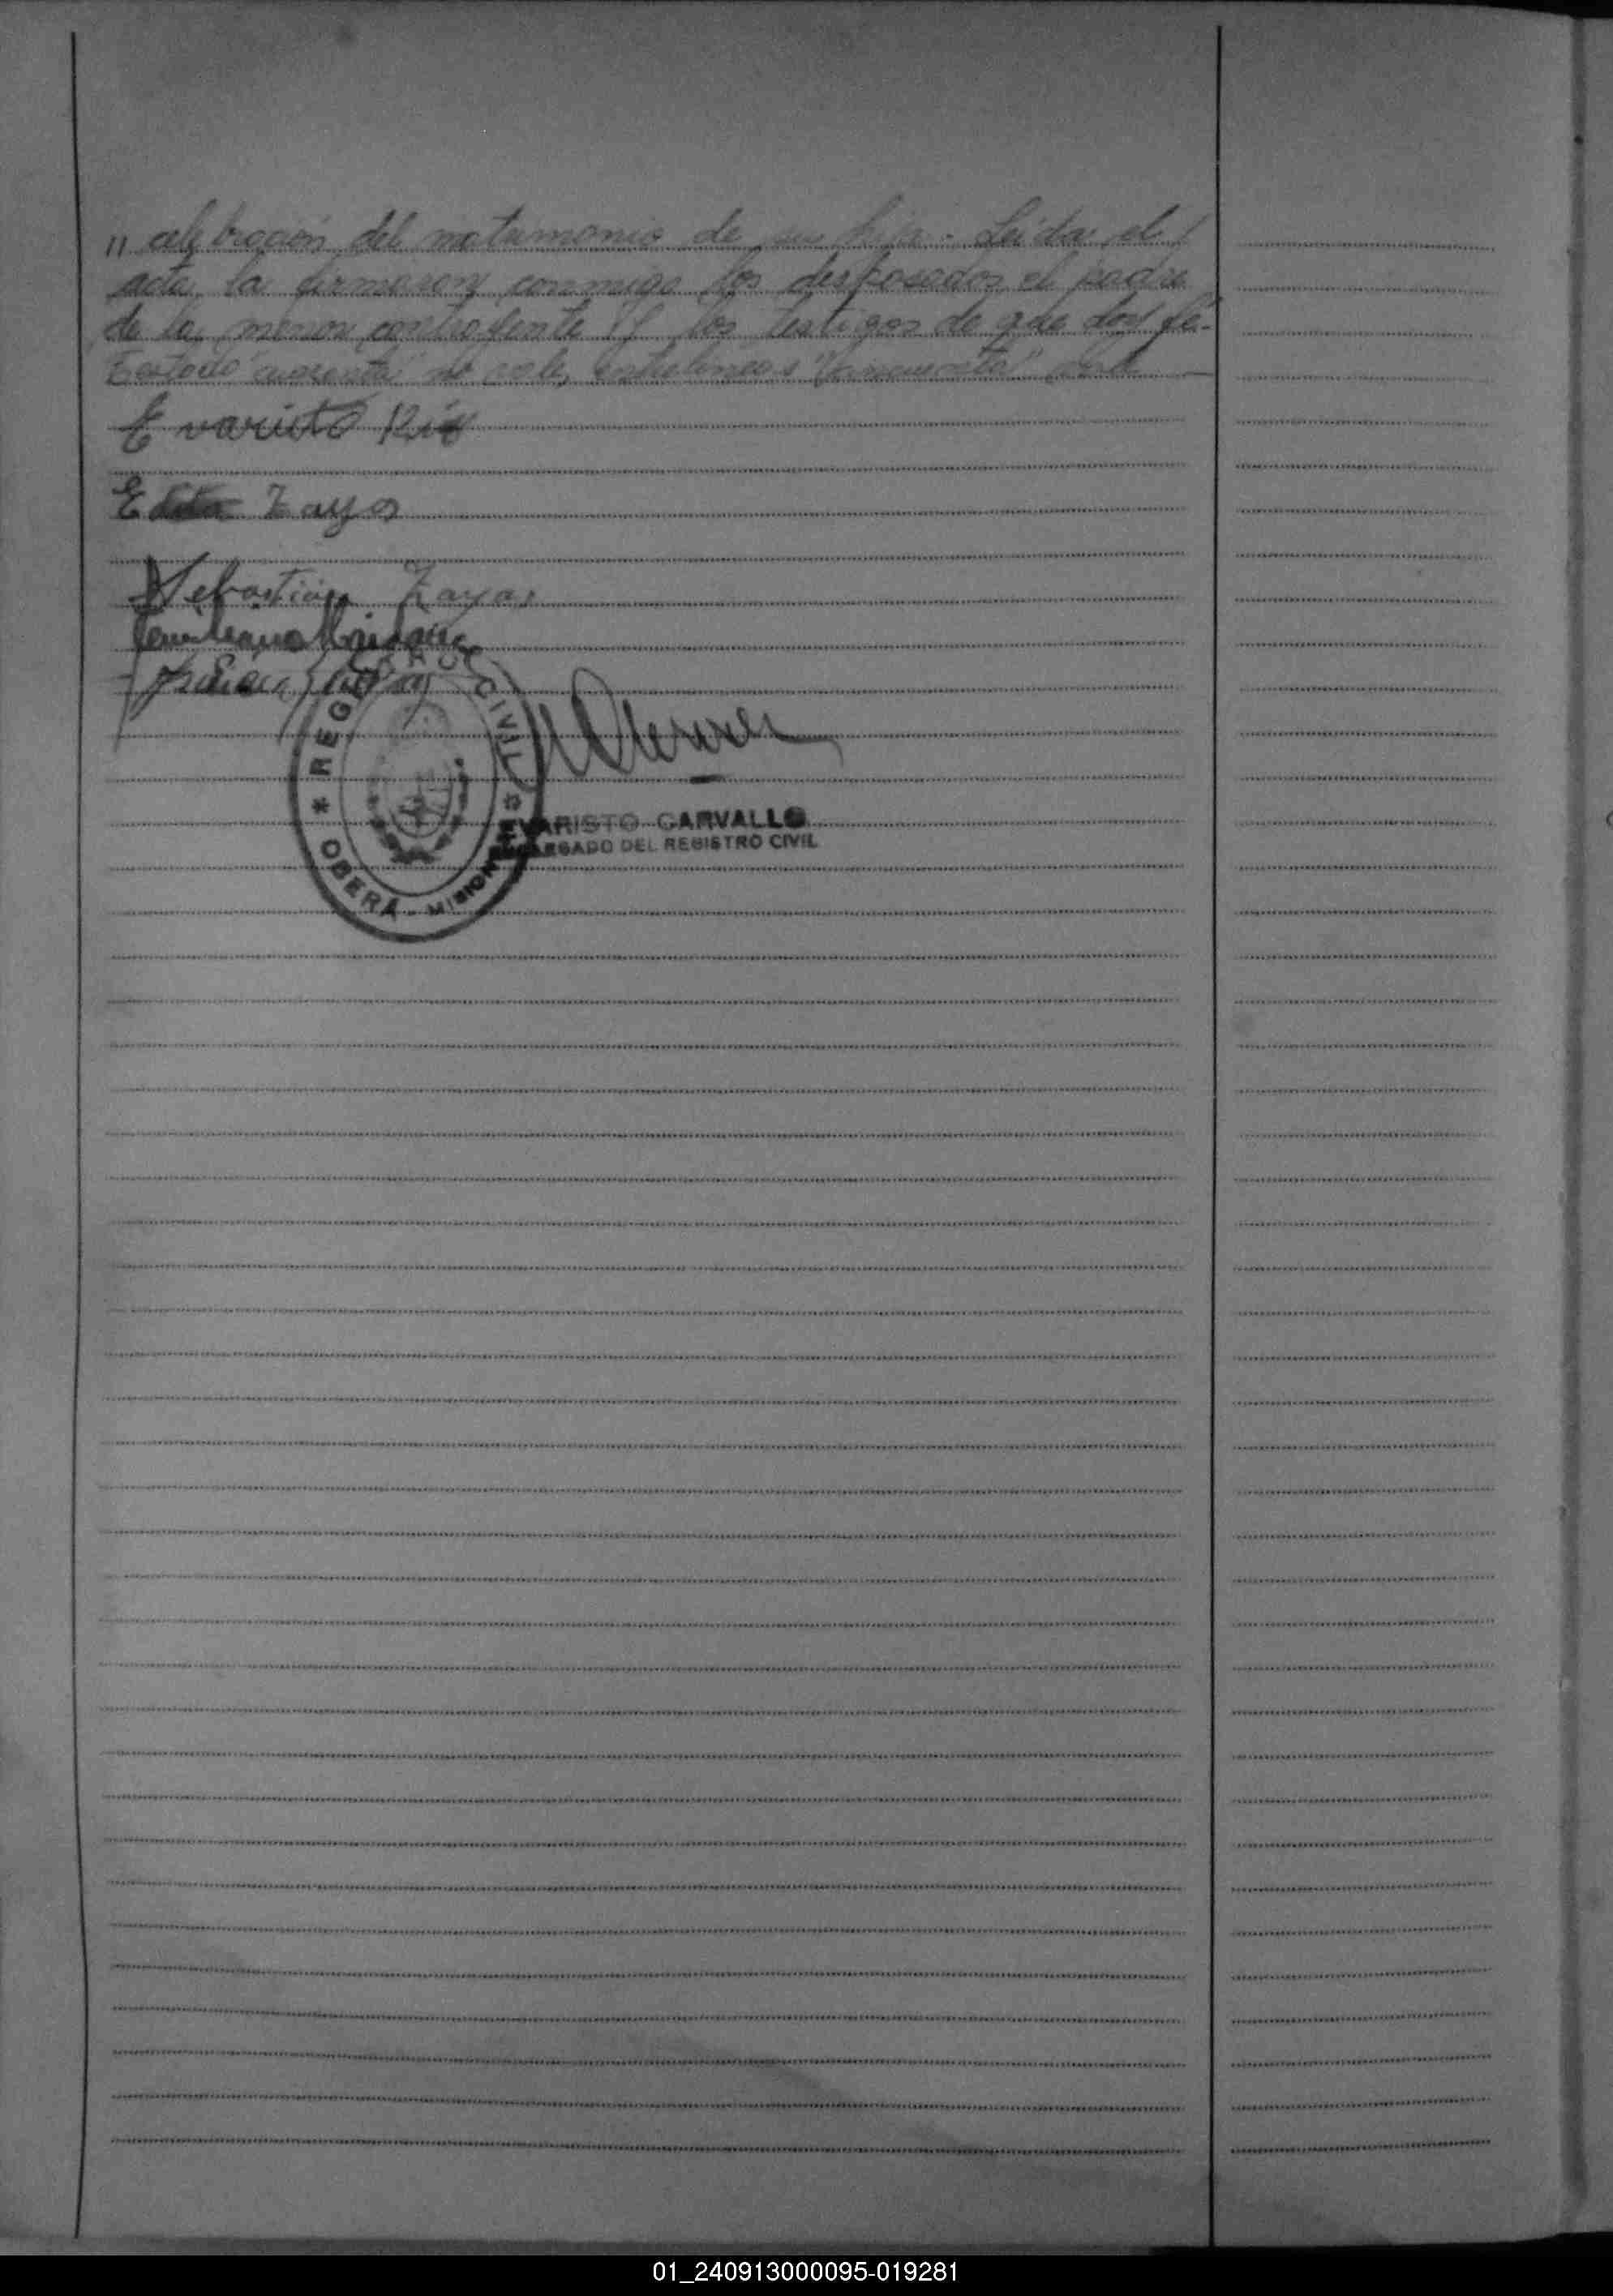 " celebración del matrimonio de su hija.- Leída el
acta, la firmaron conmigo los desposados el padre
de la menor contrayente y los testigos de que doy fé.-
Testado "cuarenta" no vale, entrelíneas "cincuenta" vale
Evaristo
E Zayas
Sebastián Zayas
REGISTRO CIVIL
* OBERÁ - MISIONES *
EVARISTO CARVALLO
ENCARGADO DEL REGISTRO CIVIL
01_240913000095-019281